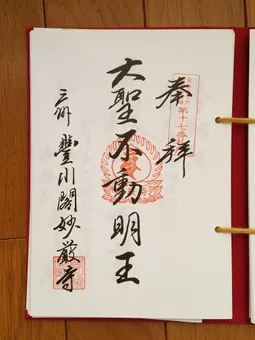 奉拝
第十七番
大聖不動明王
三州 豊川閣妙厳寺